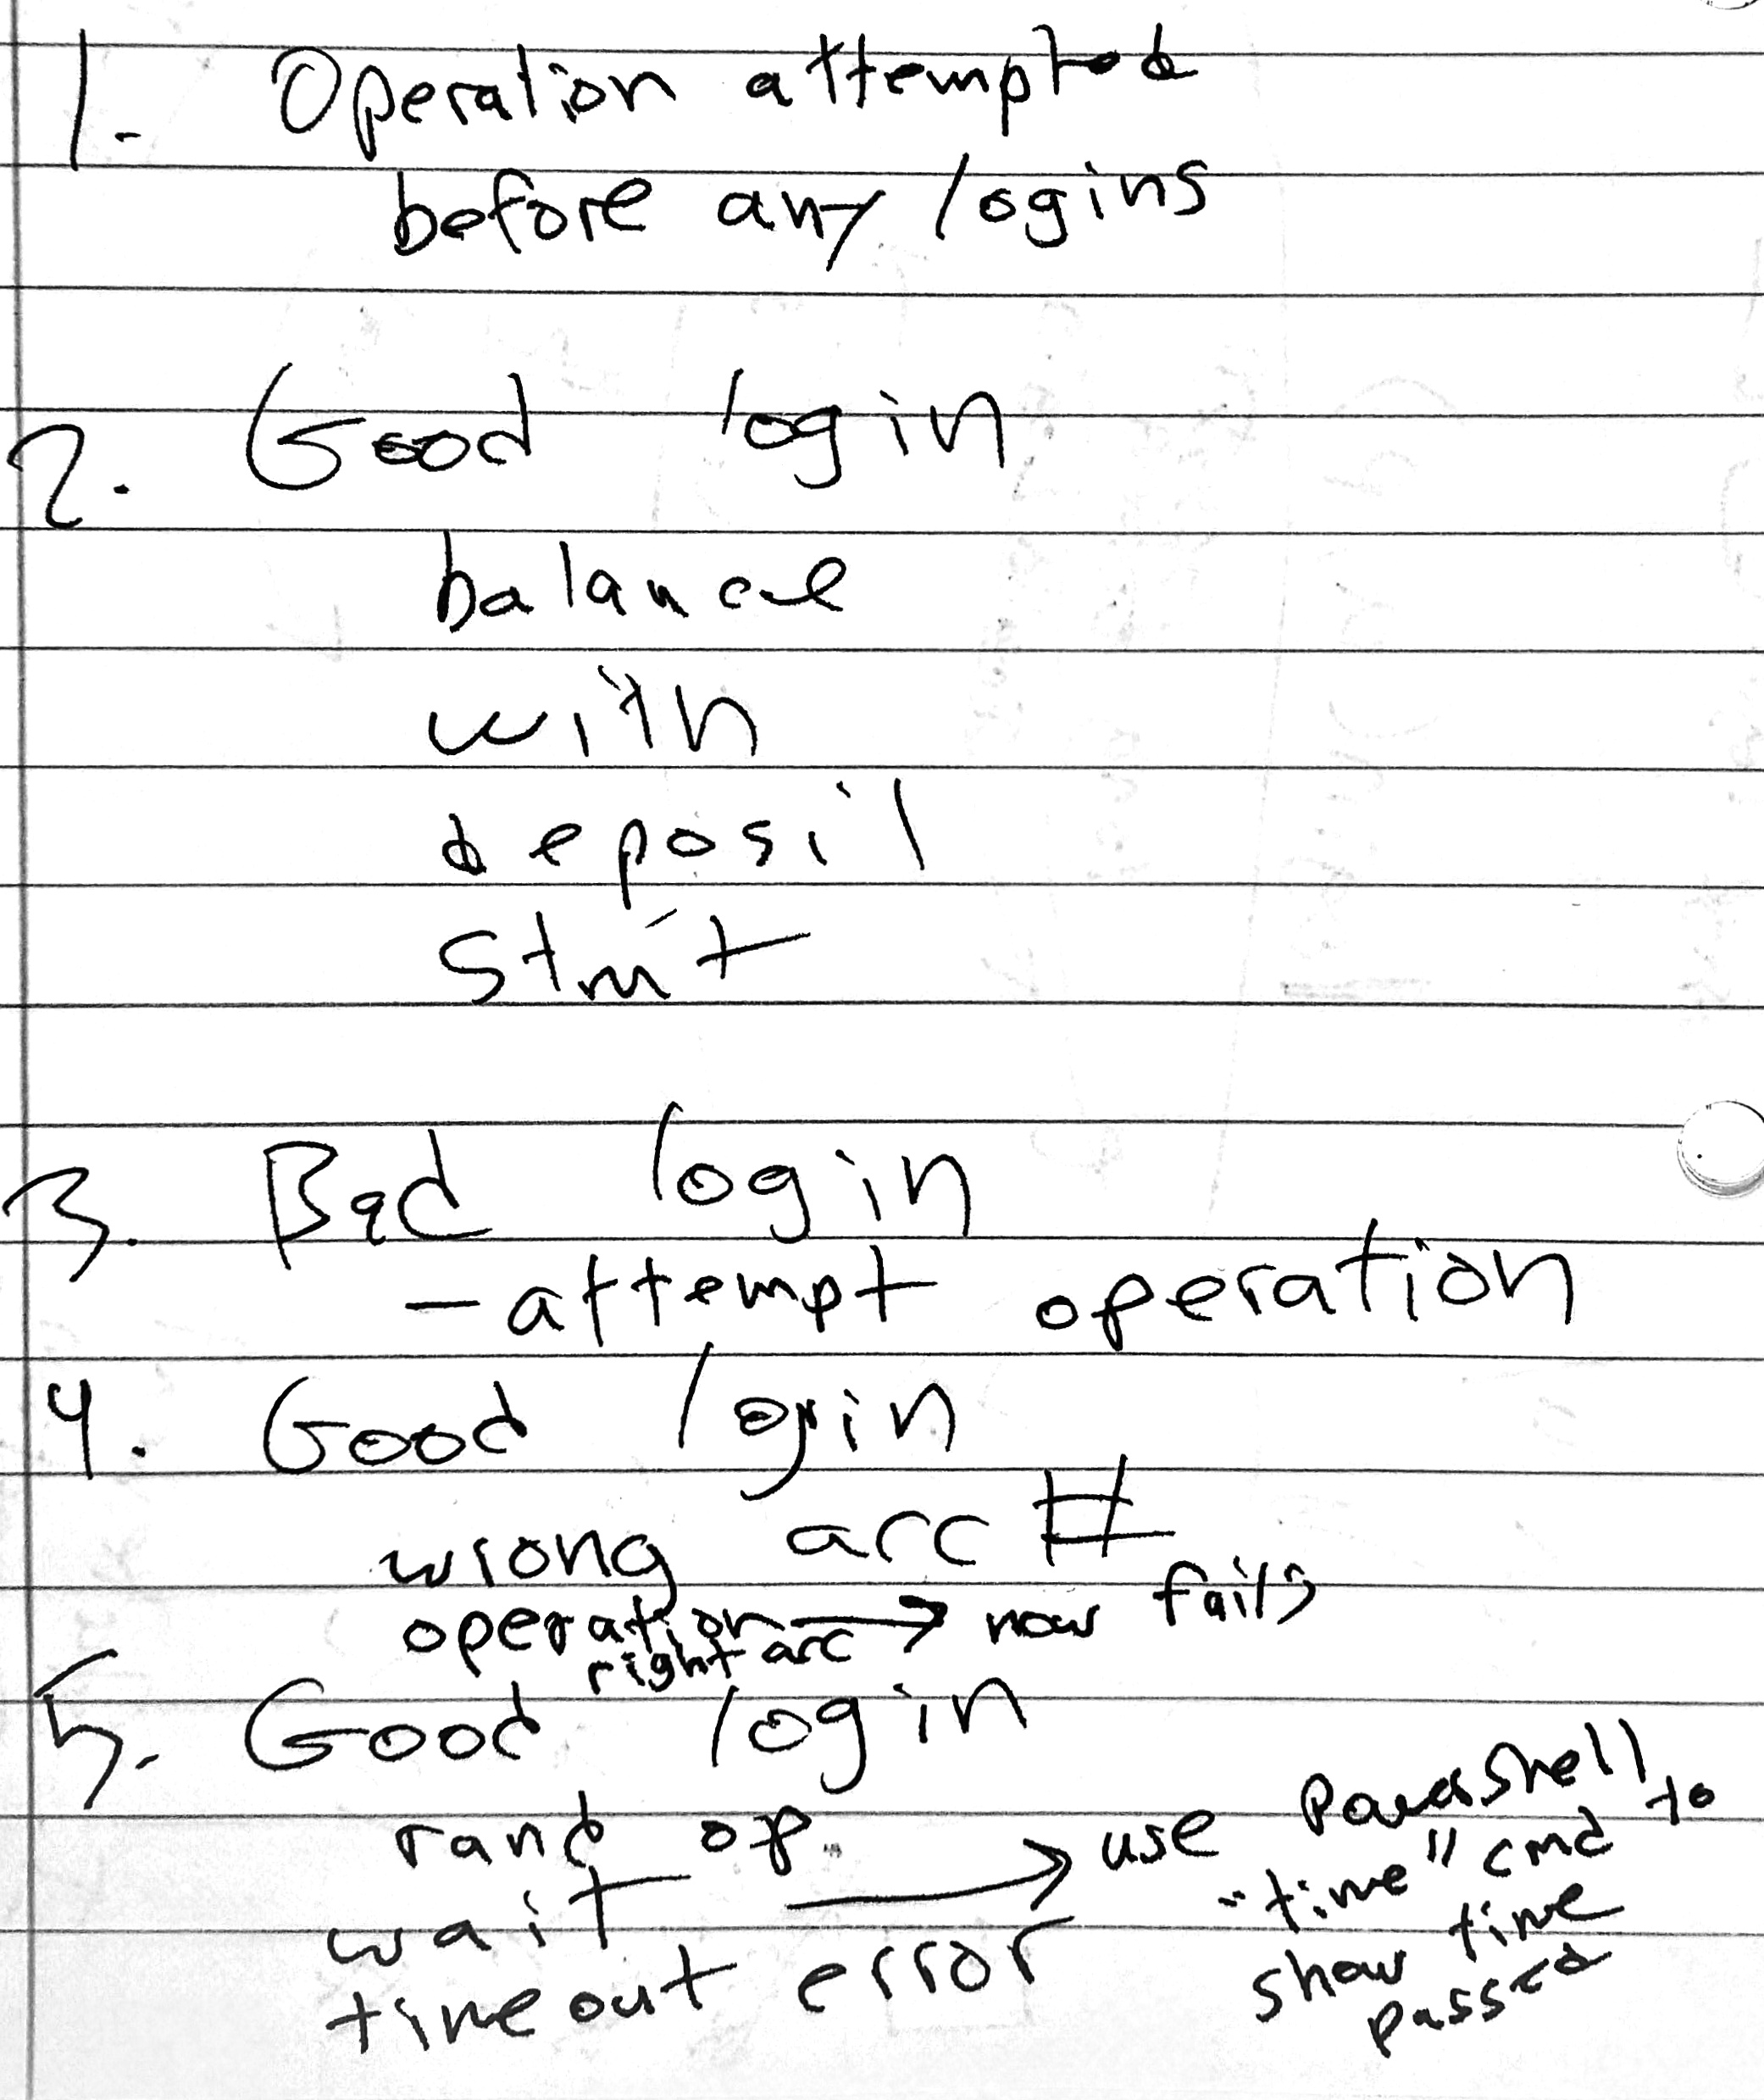 1. Operation attempted
before any logins
2. Good login
balance
with
deposit
stmt
3. Bad login
- attempt operation
4. Good login
wrong acc #
operation → now fails
right acc
5. Good login
rand op
wait → use Powershell
"time" cmd to
show time
passed
timeout error